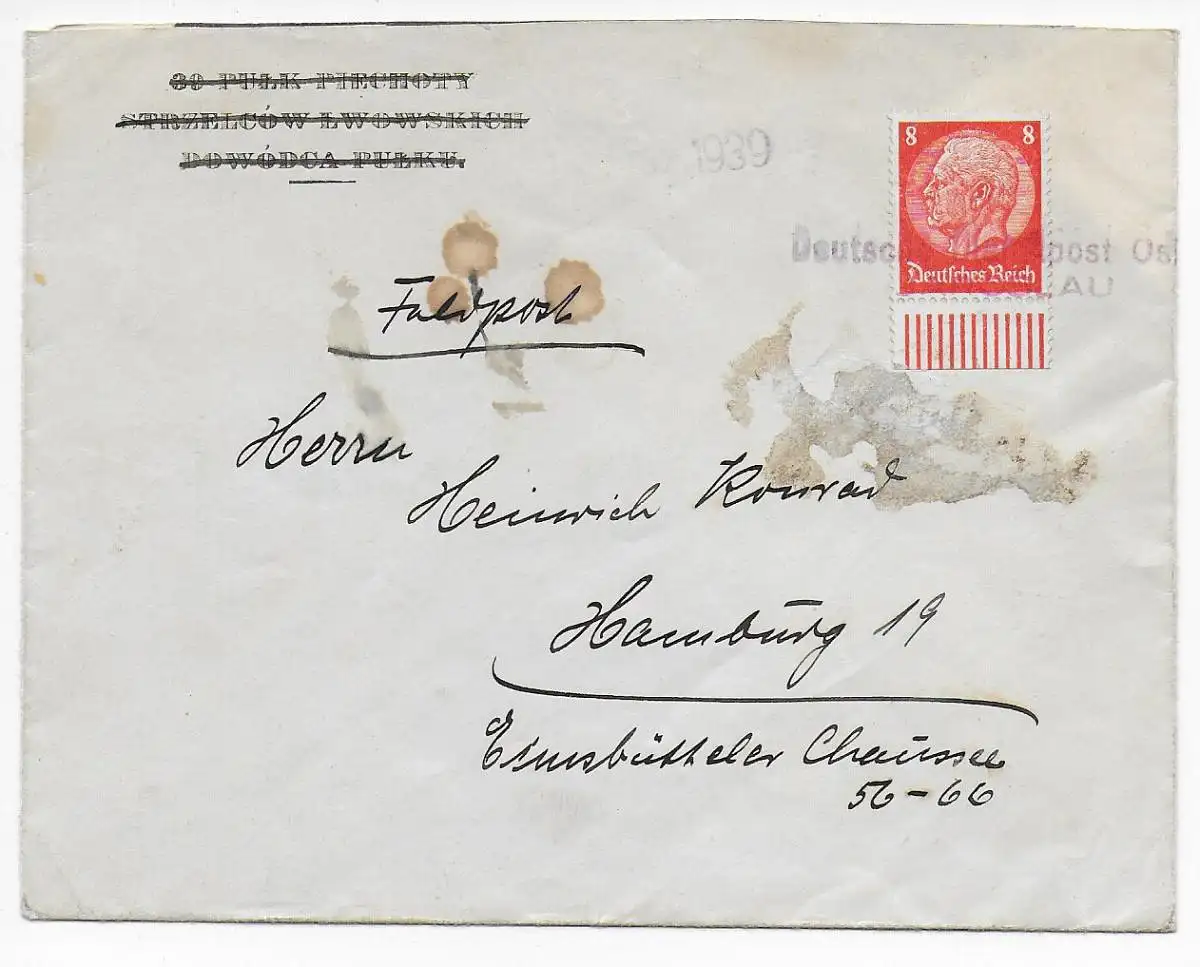 30 PUŁK PIECHOTY
STRZELCÓW LWOWSKICH
DOWÓDCA PUŁKU.
1939
8 8
Deutsches Reich
Deutsc post Os
AU
Feldpost
Herrn
Heinrich Konrad
Hamburg 19
Eimsbütteler Chaussee
56-66